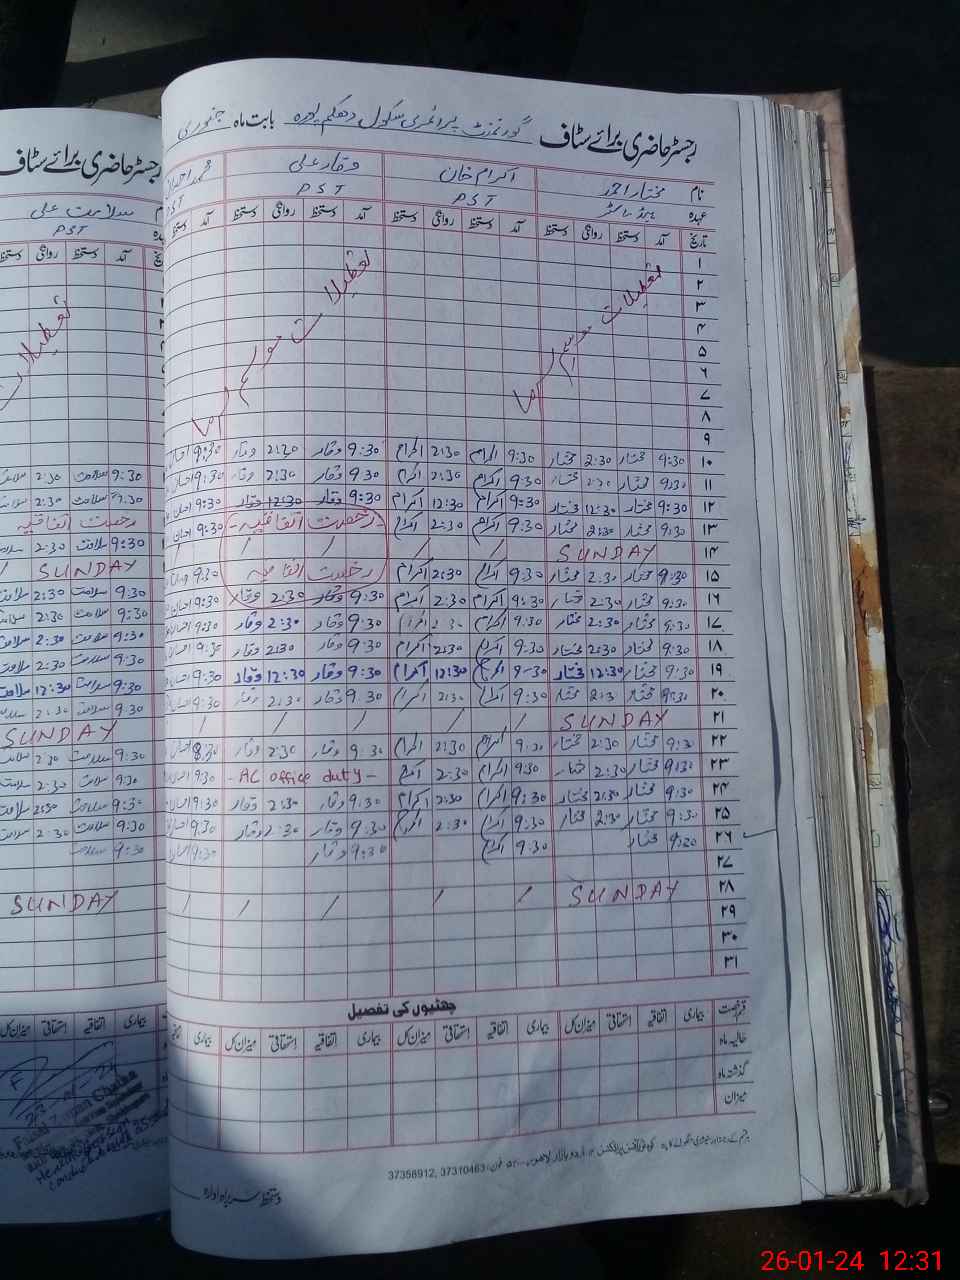 رجسٹر حاضری برائے سٹاف گورنمنٹ پرائمری سکول بابت ماہ جنوری
نام مختار احمد اکرام خان وقار علی
عہدہ ہیڈ ماسٹر PST PST
تاریخ آمد دستخط روانگی دستخط آمد دستخط روانگی دستخط آمد دستخط روانگی دستخط آمد دستخط
۱
۲
۳
۴
۵
۶
۷
۸
۹
تعطیلات موسم سرما تعطیلات موسم سرما
۱۰ 9:30 مختار 2:30 مختار 9:30 اکرام 2:30 اکرام 9:30 وقار 2:30 وقار 9:30
۱۱ 9:30 مختار 2:30 مختار 9:30 اکرام 2:30 اکرام 9:30 وقار 2:30 وقار 9:30
۱۲ 9:30 مختار 12:30 مختار 9:30 اکرام 12:30 اکرام 9:30 وقار 12:30 وقار 9:30
۱۳ 9:30 مختار 2:30 مختار 9:30 اکرام 2:30 اکرام رخصت اتفاقیہ 9:30
۱۴ SUNDAY / / / / /
۱۵ 9:30 مختار 2:30 مختار 9:30 اکرام 2:30 اکرام رخصت اتفاقیہ 9:30
۱۶ 9:30 مختار 2:30 مختار 9:30 اکرام 2:30 اکرام 9:30 وقار 2:30 وقار 9:30
۱۷ 9:30 مختار 2:30 مختار 9:30 اکرام 2:30 اکرام 9:30 وقار 2:30 وقار 9:30
۱۸ 9:30 مختار 2:30 مختار 9:30 اکرام 2:30 اکرام 9:30 وقار 2:30 وقار 9:30
۱۹ 9:30 مختار 12:30 مختار 9-30 اکرام 12:30 اکرام 9:30 وقار 12:30 وقار 9:30
۲۰ 9:30 مختار 2:30 مختار 9:30 اکرام 2:30 اکرام 9:30 وقار 2:30 وقار 9:30
۲۱ SUNDAY / / / / /
۲۲ 9:30 مختار 2:30 مختار 9:30 اکرام 2:30 اکرام 9:30 وقار 2:30 وقار 8:30
۲۳ 9:30 مختار 2:30 مختار 9:30 اکرام 2:30 اکرام - AC office duty - 9:30
۲۴ 9:30 مختار 2:30 مختار 9:30 اکرام 2:30 اکرام 9:30 وقار 2:30 وقار 9:30
۲۵ 9:30 مختار 2:30 مختار 9:30 اکرام 2:30 اکرام 9:30 وقار 2:30 وقار 9:30
۲۶ 9:20 مختار 9:30 اکرام 9:30 وقار 9:30
۲۷
۲۸ SUNDAY / / / / /
۲۹
۳۰
۳۱
چھٹیوں کی تفصیل
قسم رخصت بیماری اتفاقیہ استحقاقی میزان کل بیماری اتفاقیہ استحقاقی میزان کل بیماری اتفاقیہ استحقاقی میزان کل بیماری
حالیہ ماہ
گذشتہ ماہ
میزان
اردو بازار لاہور فون: 37310463, 37356912
دستخط سربراہ ادارہ
رجسٹر حاضری برائے سٹاف
سلامت علی
PST
آمد دستخط روانگی دستخط
تعطیلات
9:30 سلامت 2:30 سلامت
9:30 سلامت 2:30 سلامت
رخصت اتفاقیہ
9:30 سلامت 2:30
SUNDAY /
9:30 سلامت 2:30 سلامت
9:30 سلامت 2:30 سلامت
9:30 سلامت 2:30 سلامت
9:30 سلامت 2:30 سلامت
9:30 سلامت 12:30 سلامت
9:30 سلامت 2:30 سلامت
SUNDAY
9:30 سلامت 2:30 سلامت
9:30 سلامت 2:30 سلامت
9:30 سلامت 2:30 سلامت
9:30 سلامت 2:30 سلامت
9:30 سلامت
SUNDAY
بیماری اتفاقیہ استحقاقی میزان کل
26-01-24 12:31